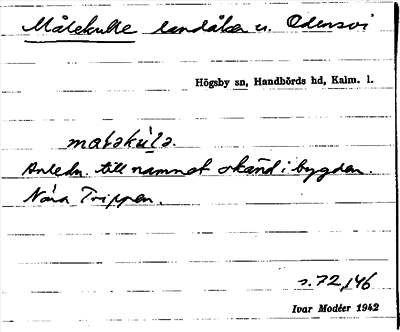 Målekulle landåker u. Odensvi
Högsby sn, Handbörds hd, Kalm. l.
matəkùlə.
Anledn. till namnet okänd i bygden.
Nära Trippen.
s. 72, 146
Ivar Modéer 1942